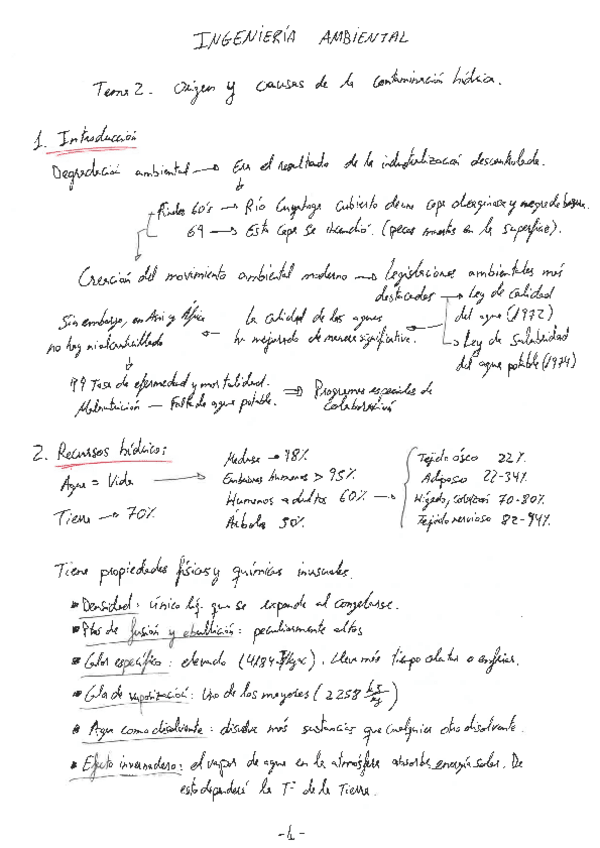 INGENIERÍA AMBIENTAL
Tema 2. Origen y causas de la contaminación hídrica.
1. Introducción
Degradación ambiental → Era el resultado de la industrialización descontrolada.
Finales 60's → Río Cuyahoga cubierto de una capa oleaginosa y negra de
69 → Esta capa se incendió. (peces muertos en la superficie).
Creación del movimiento ambiental moderno → legislaciones ambientales más
destacadas → Ley de calidad
del agua (1972)
→ Ley de Salubridad
del agua potable (1974)
La calidad de las aguas
ha mejorado de manera significativa.
Sin embargo, en Asia y África
no hay ni alcantarillado
↑↑ Tasa de enfermedad y mortalidad.
Malnutrición — Falta de agua potable. ⇒ Programas especiales de
colaboración
2. Recursos hídricos:
Agua = Vida →
Tierra → 70%
Medusa → 98%
Embriones humanos > 95%
Humanos adultos 60% →
Árboles 50%
Tejido óseo 22%
Adiposo 22-34%
Hígado, corazón 70-80%
Tejido nervioso 82-94%
Tiene propiedades físicas y químicas inusuales.
Densidad: único líq. que se expande al congelarse.
Ptos de fusión y ebullición: peculiarmente altos
Calor específico: elevado (4184 J/kgK). Lleva más tiempo calentar o enfriar.
Calor de vaporización: Uno de los mayores (2258 kJ/kg)
Agua como disolvente: disuelve más sustancias que cualquier otro disolvente.
Efecto invernadero: el vapor de agua en la atmósfera absorbe energía solar. De
esto dependerá la Tª de la Tierra.
-1-